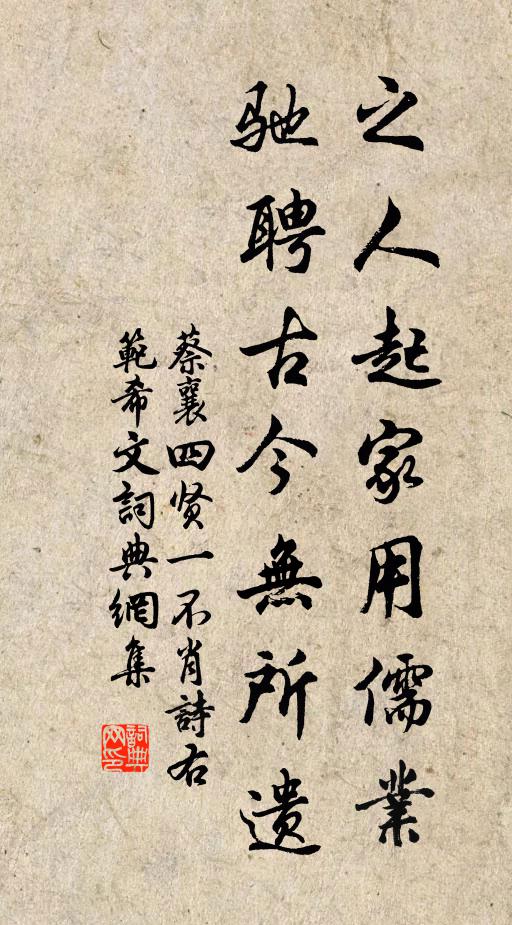 之人起家用儒業
驰聘古今無所遗
蔡襄四贤一不肖詩右
範希文詞典網集
詞典
网印